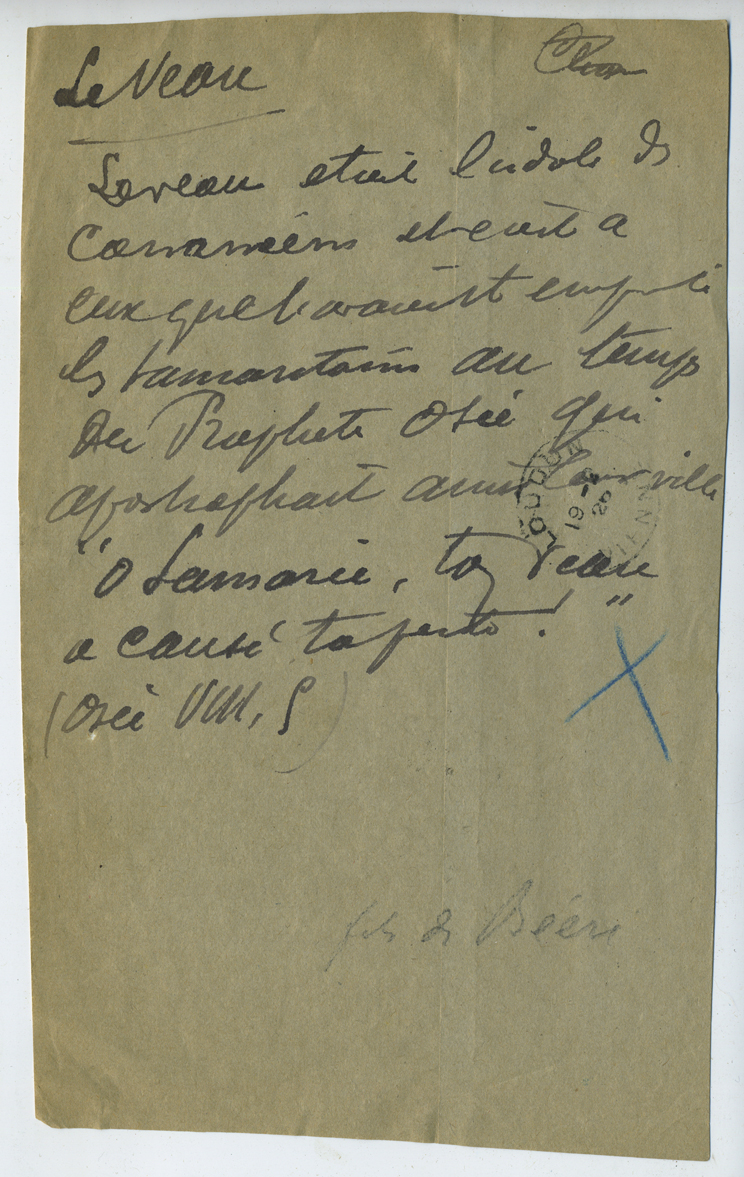 Le Veau
Le veau etait l'idole des
Cananéens et c'est a
eux que l'avaient emprunté
les Samaritains au temps
du Prophete Osée qui
apostrophait ainsi leur ville
"O Samarie, ton Veau
a causé ta perte ! "
(Osée VIII, 5)
LOUDUN
19 -
VIENNE
fils de Béeri